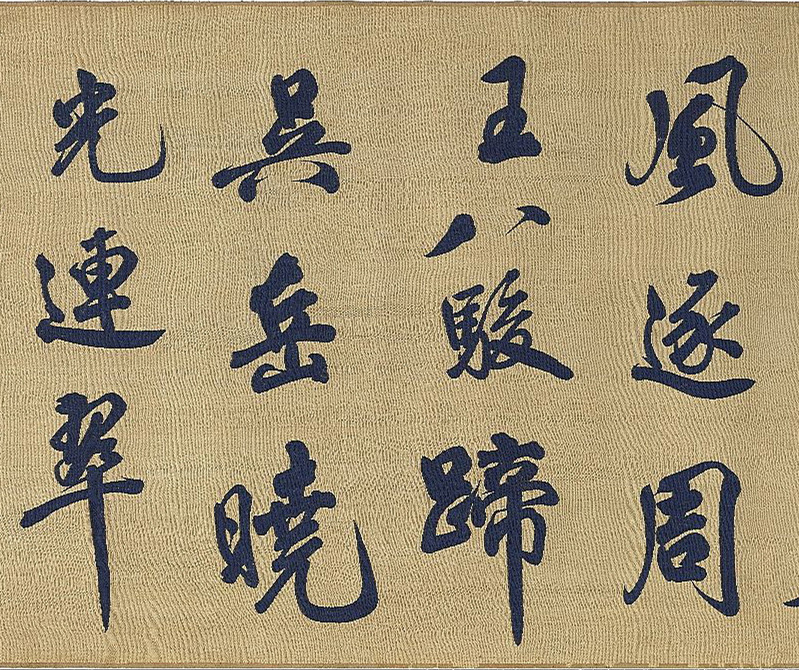 風逐周
王八駿蹄
吳岳曉
光連翠